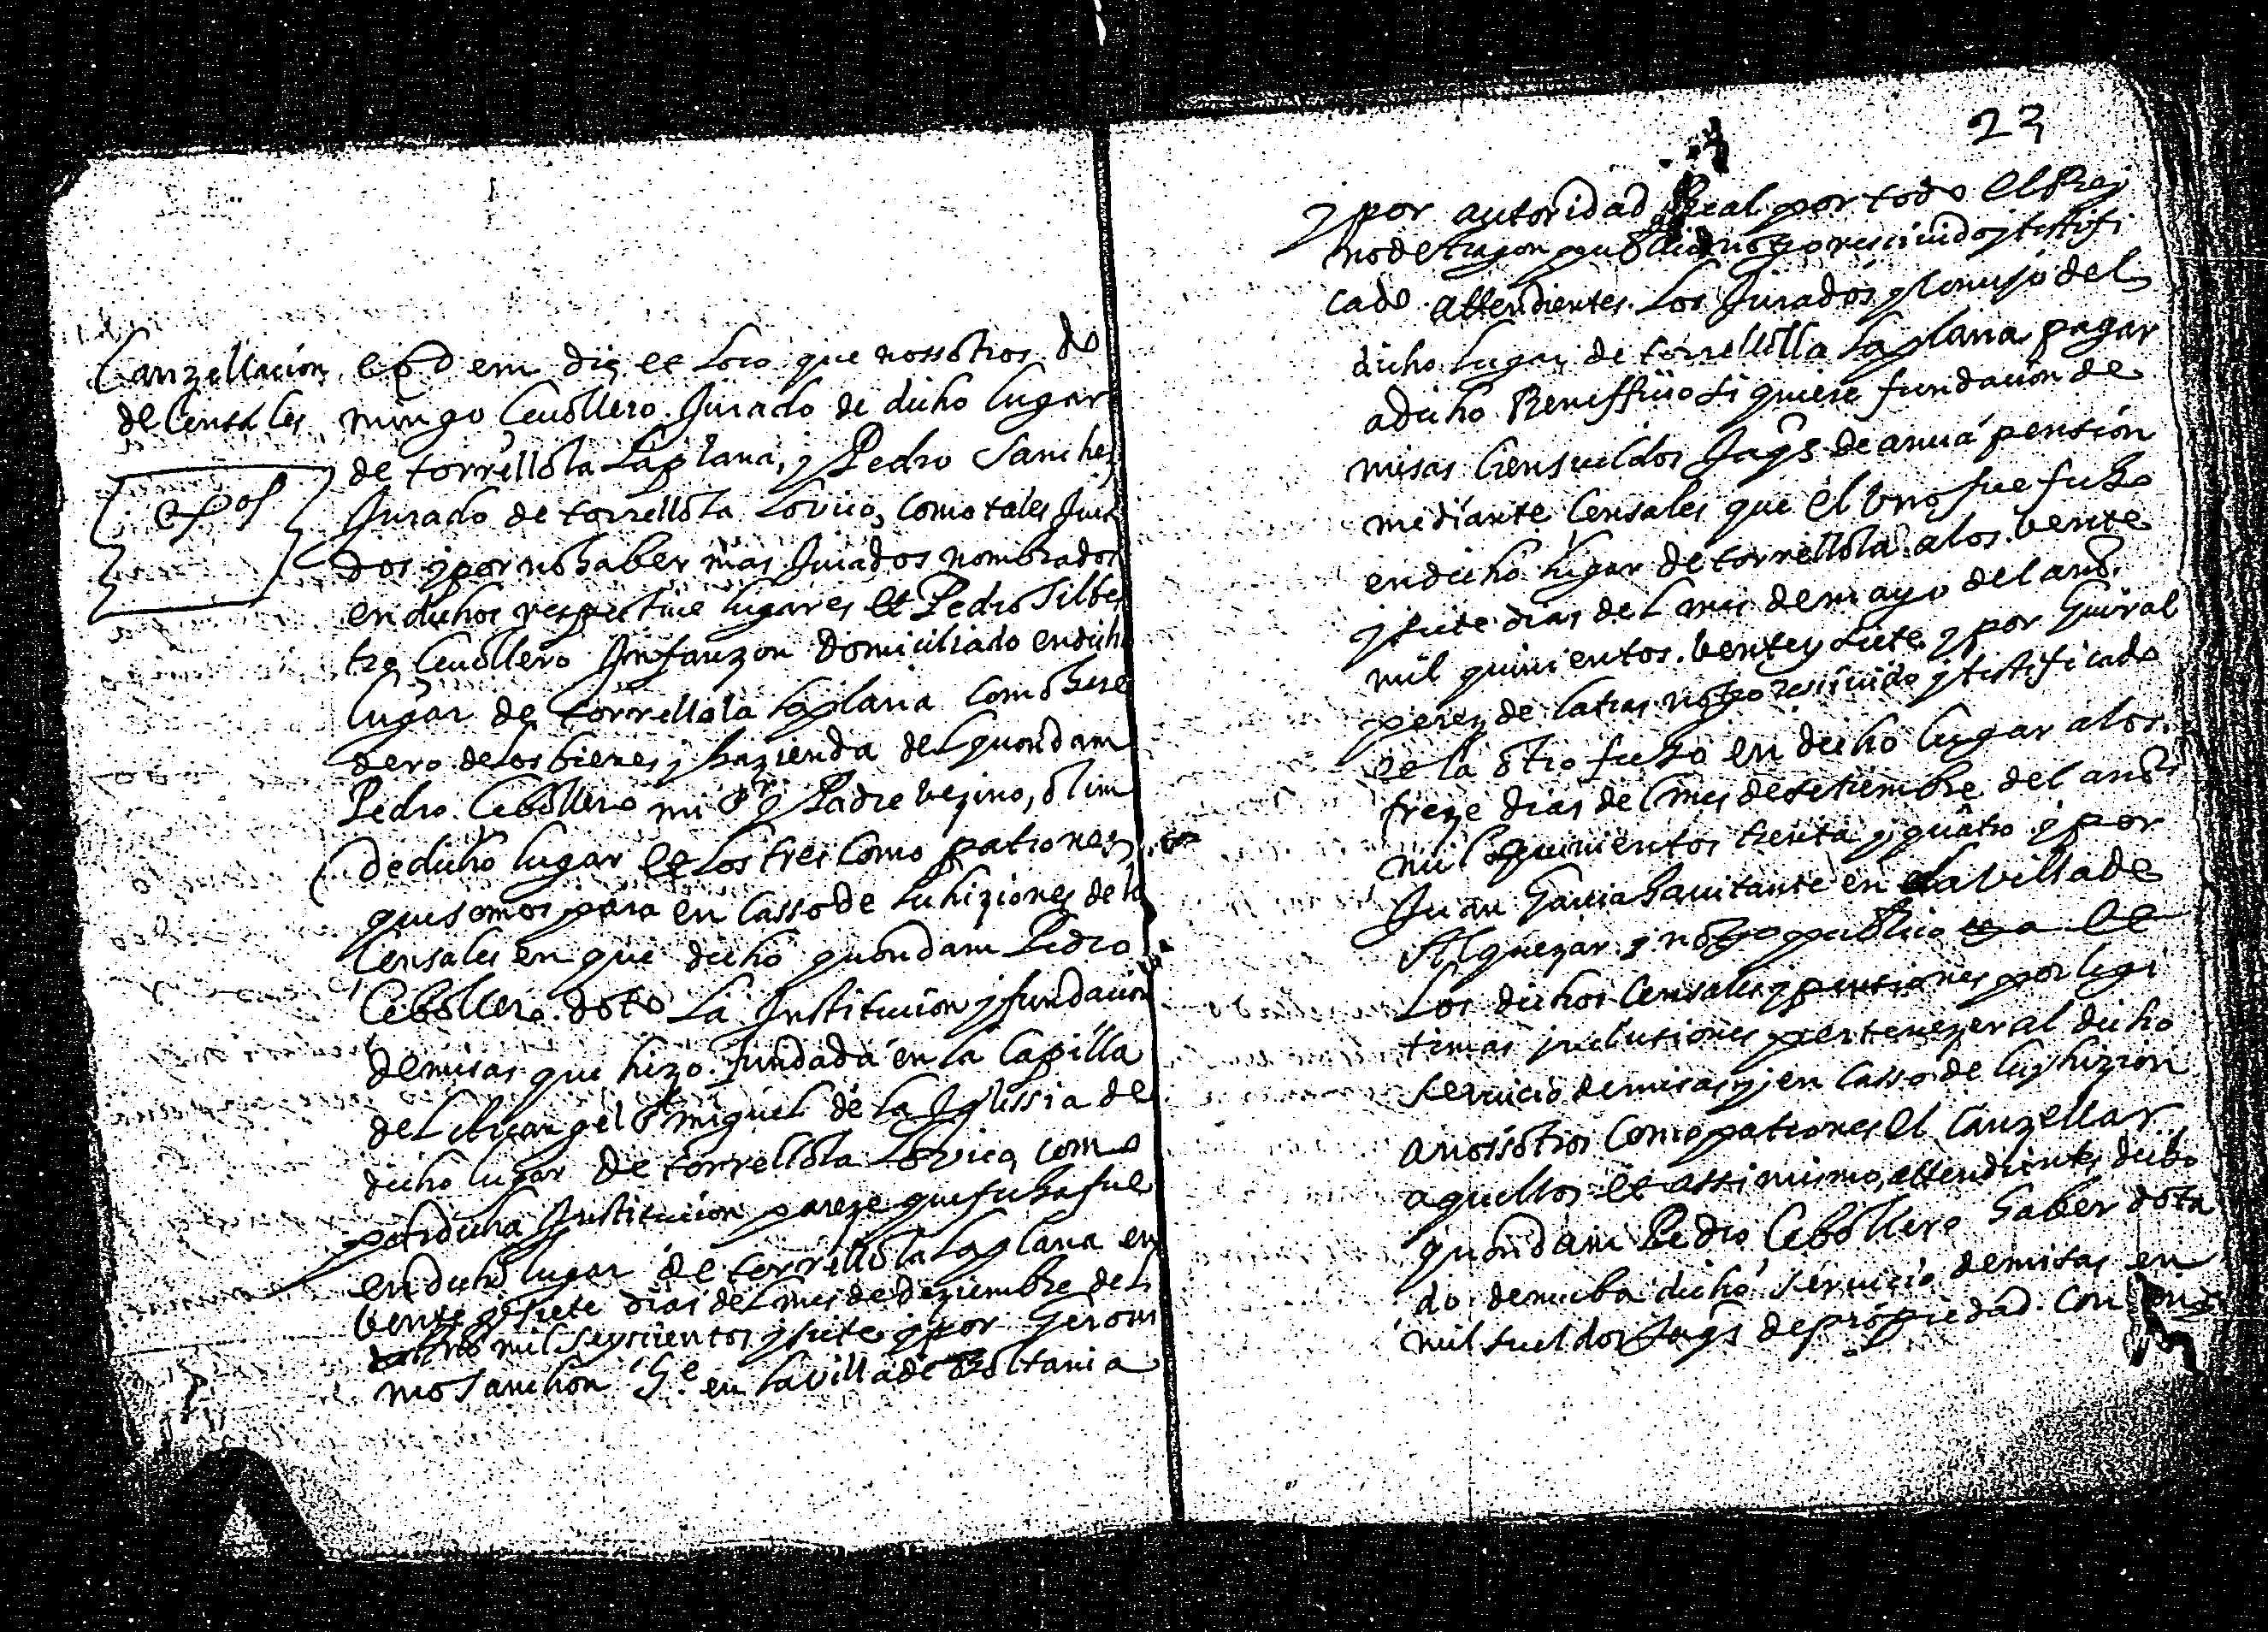 Canzellacion
de Censales
Eodem die et loco que nossotros do
mingo Cevollero Jurado de dicho lugar
de torrellola Laplana, y Pedro Sanchez
Jurado de torrellola Lovico, como tales Jura
dos y por no haber mas Jurados nombrados
en dichos respective lugares et Pedro Silbes
tre Cevollero Infanzon Domiciliado en dicho
lugar de torrellola laplana como here
dero de los bienes y hazienda del quondam
Pedro Cebollero mi Sr y Padre vezino, olim
de dicho lugar et los tres como patrones
que somos para en casso de luhiziones de lo
Censales en que dicho quondam Pedro
Cebollero doto La Institucion y fundacion
de misas que hizo fundada en la Capilla
del Arcangel St miguel de la Iglessia de
dicho lugar de torrellola Lovico como
por dicha Institucion pareze que fecha fue
en dicho lugar de torrellola laplana en
vente y siete dias del mes de deziembre del
año mil seyscientos y siete y por Geroni
mo Sanchon en la villa de Boltania
23
y por autoridad Real por todo el Rey
no de Aragon publico notrio rescivido y testifi
cado. attendientes Los Jurados y Consejo del
dicho lugar de torrellolla laplana pagar
a dicho Beneffiio si quiere fundacion de
misas Cien sueldos Jaqs de annua pension
mediante Censales que el vno fue fecho
en dicho lugar de torrellola a los vente
y siete dias del mes de mayo del año
mil quinientos vente y siete y por Guiral
perez de latras notrio rescivido y testificado
et la otro fecho en dicho lugar a los
treze dias del mes de setiembre del año
mil quinientos trenta y quatro y por
Juan Garcia havitante en la villa de
Alquezar y notrio publico et
Los dichos Censales y pensiones por legi
timas inclusiones pertenezer al dicho
servicio de misas y en casso de luyhizion
a nossotros como patrones el Canzellar
aquellos et assi mismo attendientes dicho
quondam Pedro Cebollero haber dota
do dicho servicio de misas en
mil sueldos Jaqs de propiedad con